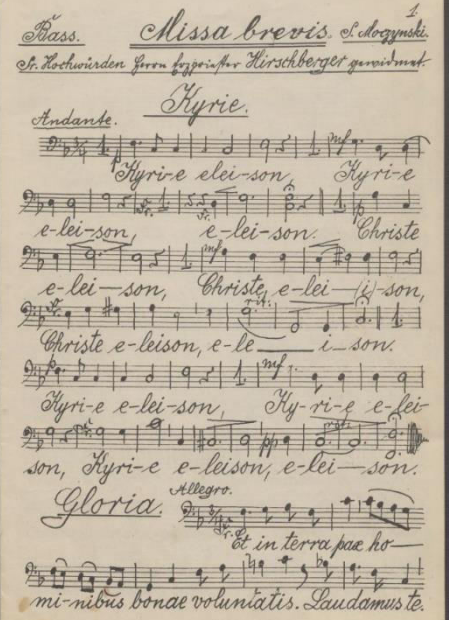 1
Bass. Missa brevis. S. Moczynski.
Sr. Hochwürden Herrn Erzpriester Hirschberger gewidmet.
Kyrie.
Andante.
mf
Kyri-e elei-son, Kyri-e
e-lei-son, e-lei-son. Christe
mf
e-lei-son, Christe, e-lei-(i)-son,
rit:
Christe e-leison, e-le i-son.
mf
Kyri-e e-lei-son, Ky-ri-e e-lei-
pp rit.
son, Kyri-e e-leison, e-lei-son.
Gloria. Allegro.
Et in terra pax ho-
mi-nibus bonae voluntatis. Laudamus te.